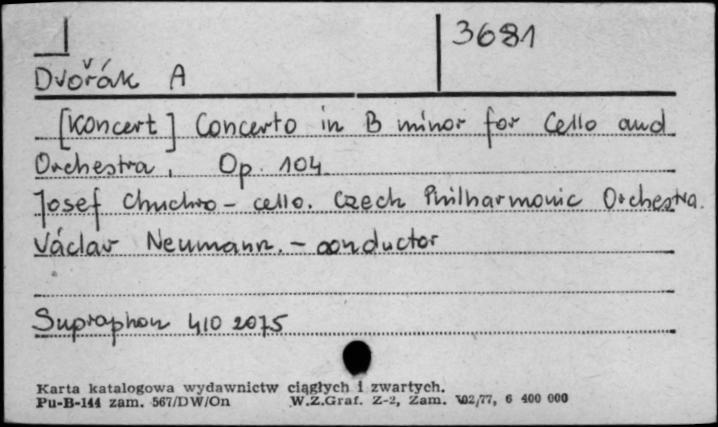 3681
Dvořák A
[Koncert] Concerto in B minor for Cello and
Orchestra, Op. 104
Josef Chuchro – cello. Czech Philharmonic Orchestra.
Václav Neumann. – conductor
Supraphon 410 2075
Karta katalogowa wydawnictw ciągłych i zwartych.
Pu-B-144 zam. 567/DW/On W.Z.Graf. Z-2, Zam. 102/77, 6 400 000